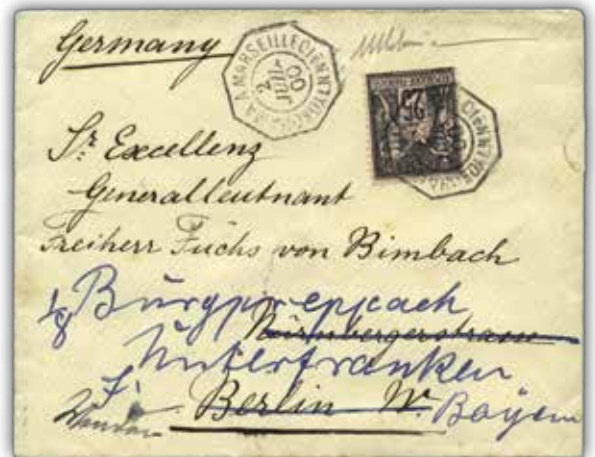 Germany
2
JUIL
00
25
Sr. Excellenz
Generalleutnant
Freiherr Fuchs von Bimbach
Burgpreppach
Nürnbergerstrasse
Unterfranken
Berlin W. Bayern